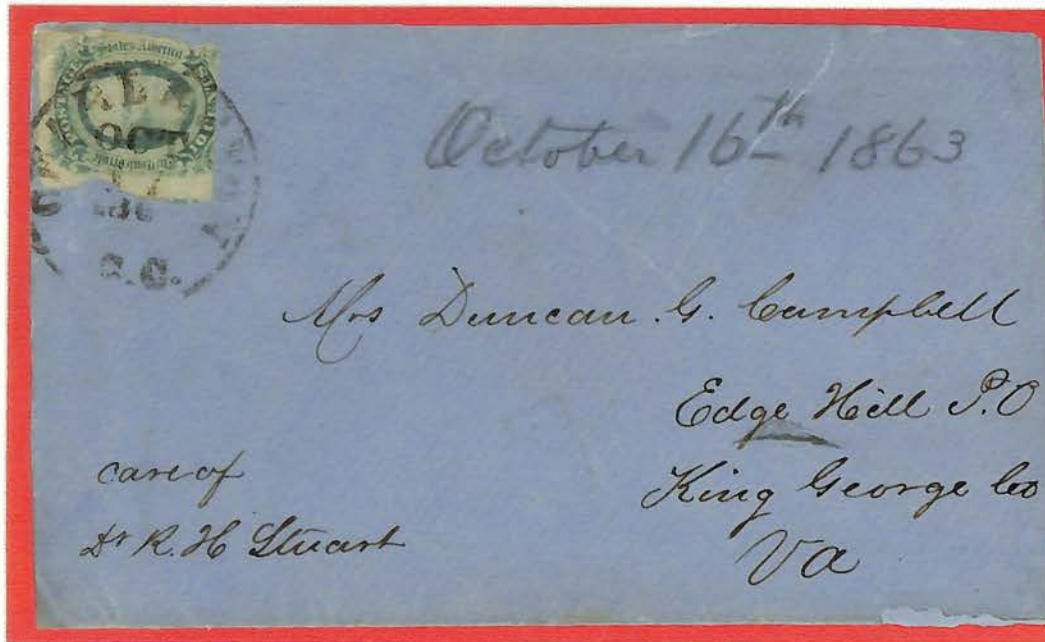 POSTAGE
States America
OCT
S.C.
October 16th 1863
Mrs Duncan. G. Campbell
Edge Hill P.O
King George Co
Va
care of
Dr R. H Stuart